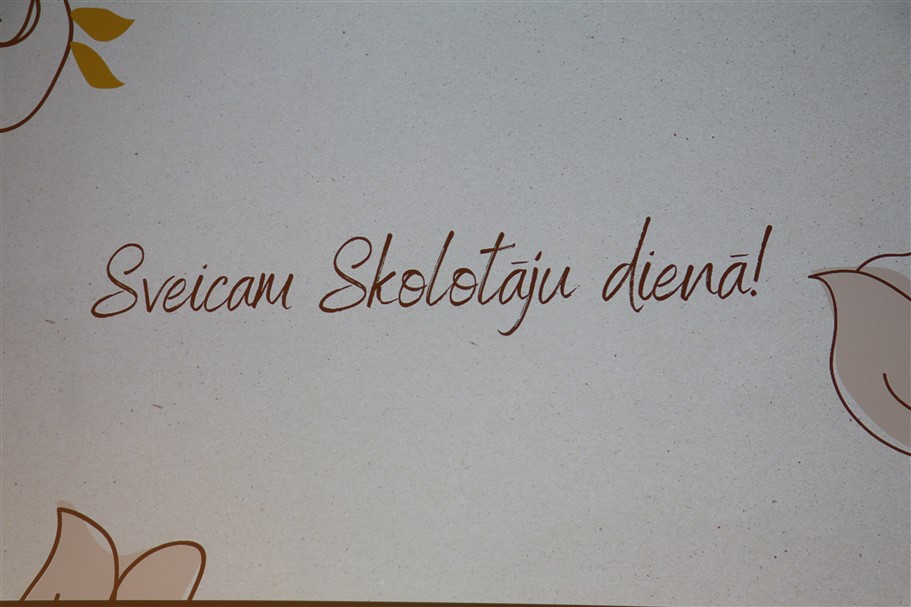 Sveicam Skolotāju dienā!